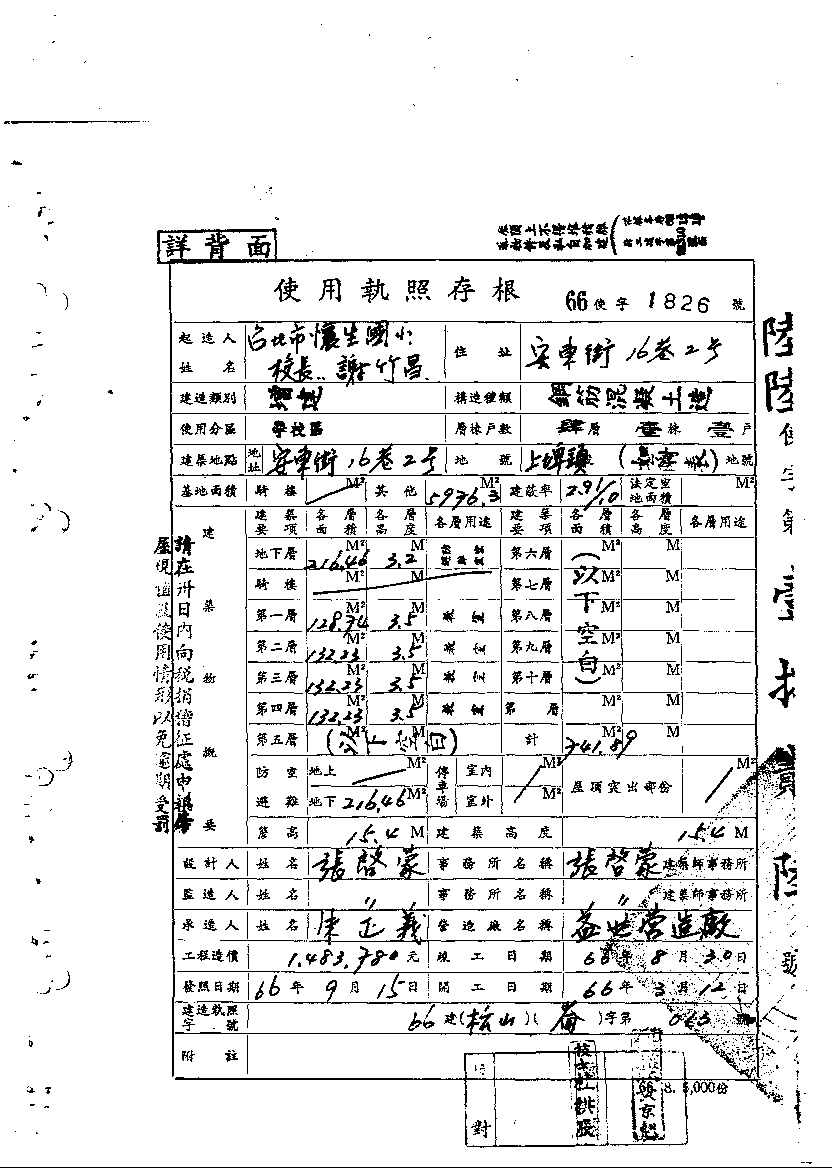 詳背面
使用執照存根 66使字1826號
起造人姓名 台北市懷生國小校長 謝竹昌 住址 安東街16巷2号
建造類別 增建 構造種類 鋼筋混凝土造
使用分區 學校區 層棟戶數 肆層 壹棟 壹戶
建築地點 地址 安東街16巷2号 地號 上埤頭 地號
基地面積 騎樓 M² 其他 5976.3 M² 建蔽率 法定空地面積 M²
建築物概要
建築要項 各層面積 各層高度 各層用途 建築要項 各層面積 各層高度 各層用途
地下層 216.46 M² 3.2 M 第六層 M² M
騎樓 M² M 第七層 M² M
第一層 128.74 M² 3.5 M 教室 第八層 M² M
第二層 132.23 M² 3.5 M 教室 第九層 M² M
第三層 132.23 M² 3.5 M 教室 第十層 M² M
第四層 132.23 M² 3.5 M 教室 第 層 M² M
(以下空白)
第五層 (以下空白) M² M 計 741.89 M²
防空避難 地上 M² 停車場 室內 M² 屋頂突出部份 M²
地下 216.46 M² 室外 M²
簷高 15.4 M 建築高度 15.4 M
設計人 姓名 張啓蒙 事務所名稱 張啓蒙 建築師事務所
監造人 姓名 〃 事務所名稱 〃 建築師事務所
承造人 姓名 陳正義 營造廠名稱 營造廠
工程造價 1,483,780元 竣工日期 66年8月30日
發照日期 66年9月15日 開工日期 66年3月12日
建造執照字號 66建(松山)( )字第 號
附註
校對
66. 8. 5,000份
請在卅日內向稅捐稽征處申報
房屋現值及使用情形以免逾期受罰
陸陸使字第壹 號